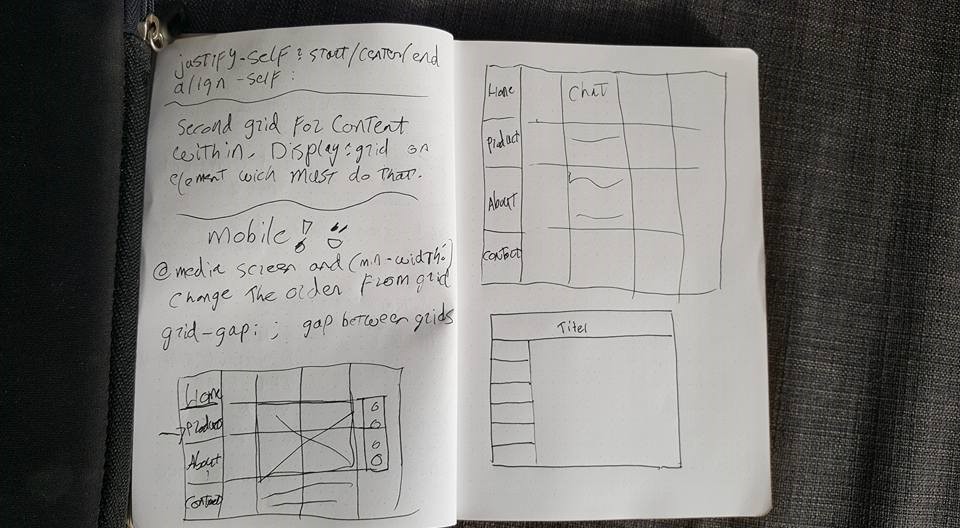 justify-self : start/center/end
align-self :
Second grid For Content
within. Display:grid on
element wich must do that.
mobile! :
@media screen and (min-width:)
change the order from grid
grid-gap: ; gap between grids
Home
Product
About
Contact
Home
Chat
Product
About
Contact
Titel